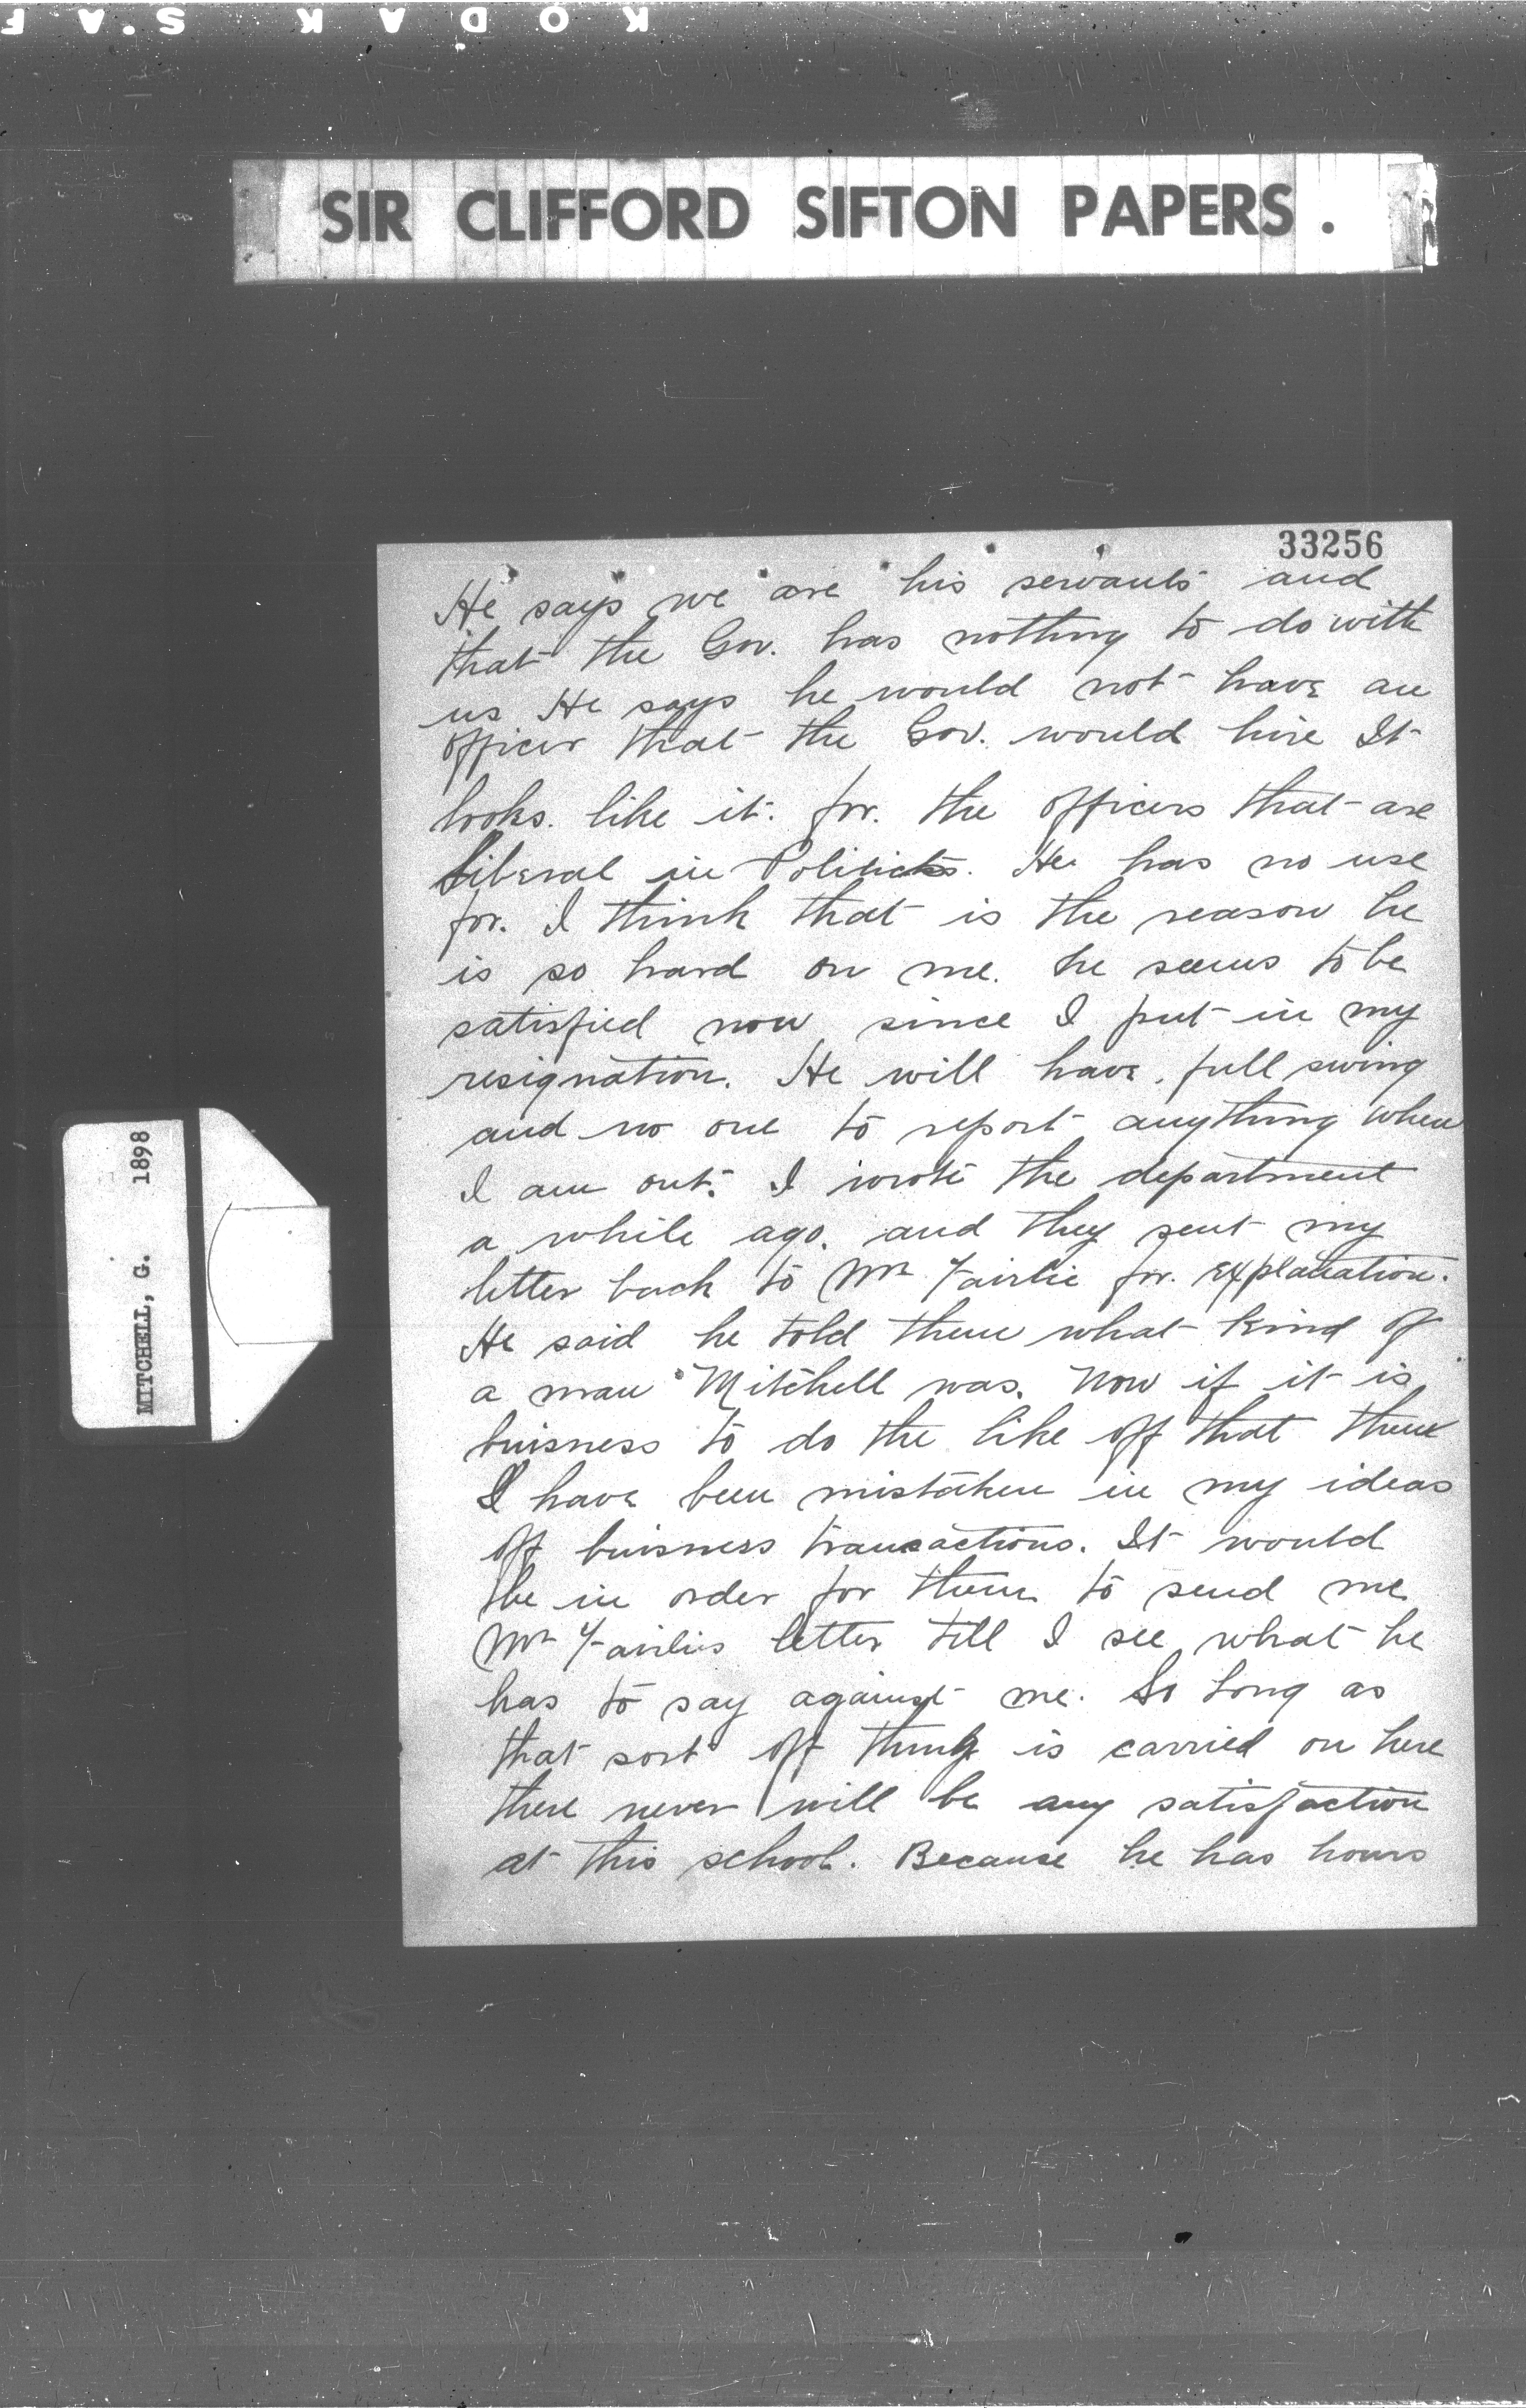 KODAK S.AF
SIR CLIFFORD SIFTON PAPERS.
33256
He says we are his servants and
that the Gov. has nothing to do with
us He says he would not have an
officer that the Gov. would hire It
looks. like it. for. the officers that are
Liberal in Politicks. He has no use
for. I think that is the reason he
is so hard on me. he seems to be
satisfied now since I put in my
resignation. He will have. full swing
and no one to report anything when
I am out. I wrote the department
a while ago. and they sent my
letter back to Mr Fairlie for. explanation.
He said he told them what kind of
a man Mitchell was. Now if it is
buisness to do the like off that then
I have been mistaken in my ideas
off buisness transactions. It would
be in order for them to send me
Mr Fairlies letter till I see what he
has to say against me. So long as
that sort off thing is carried on here
there never will be any satisfaction
at this school. Because he has hours
MITCHELL, G. 1898